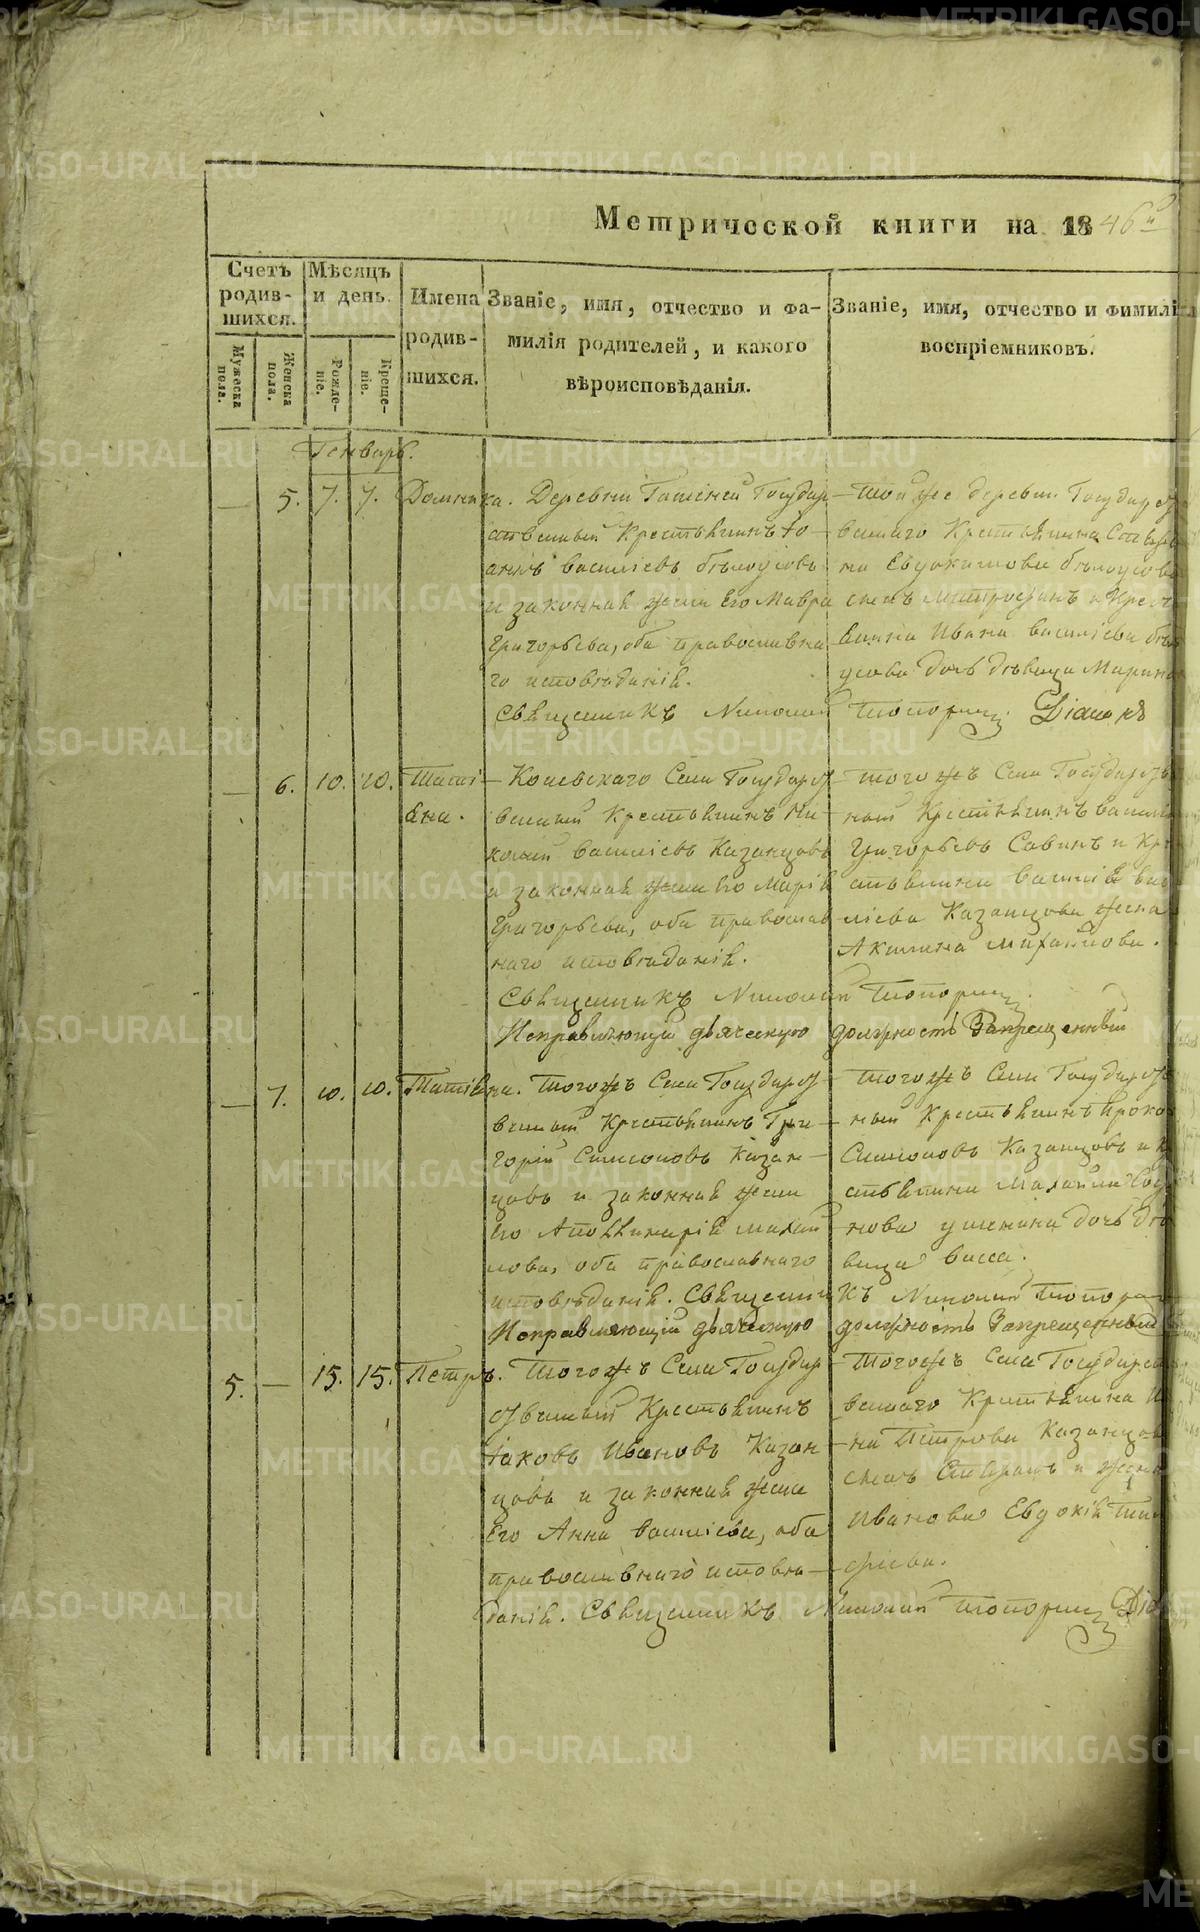 Метрической книги на 1846й
Счетъ родив-шихся.
Мужеска пола.
Женска пола.
Мѣсяцъ и день.
Рожде-ніе.
Креще-ніе.
Имена родив-шихся.
Званіе, имя, отчество и фа-
милія родителей, и какого
вѣроисповѣданія.
Званіе, имя, отчество и фимилі
воспріемниковъ.
Генварь.
— 5. 7. 7. Домника.
Деревни Государ-
ственный Крестьянинъ Іо-
аннъ Василіевъ Бѣлоусовъ
и законная жена Его Мавра
Григорьева, оба православна-
го исповѣданія.
Той же деревни Государст
веннаго Крестьянина Степа
на Евдокимова Бѣлоусова
сынъ Митрофанъ и Крест
янина Ивана Василіева Бѣло
усова дочь дѣвица Марина
Священникъ Николай Топорин Діаконъ
— 6. 10. 10. Таті-
яна.
Коневскаго Села Государст-
венный Крестьянинъ Ни-
колай Василіевъ Казанцовъ
и законная жена Его Марія
Григорьева, оба православ-
наго исповѣданія.
тогожъ Села Государств
ный Крестьянинъ Васили
Григорьевъ Савинъ и Кре
стьянина Василія Васи
ліева Казанцова жена
Акилина Михайлова.
Священникъ Николай Топорин
Исправляющій дьяческую должность Запрещенный
— 7. 10. 10. Татіяна.
Тогожъ Села Государст-
венный Крестьянинъ Гри-
горій Симеоновъ Казан-
цовъ и законная жена
Его Аполлинарія Михай-
лова, оба православнаго
исповѣданія. Священникъ Николай Топорин
тогожъ Села Государств
ный Крестьянинъ Проко
Симеоновъ Казанцовъ и К
стьянина Михаила
нова дочь дѣ
вица Васса.
Исправляющій дьяческую должность Запрещенный
5. — 15. 15. Петръ.
Тогожъ Села Государ-
ственный Крестьянинъ
Іаковъ Ивановъ Казан
цовъ и законная жена
Его Анна Василіева, оба
православнаго исповѣ-
данія. Священникъ Николай Топорин Діа
Тогожъ Села Государст
веннаго Крестьянина И
на Петрова Казанцова
сынъ и жена
Иванова Евдокія Ти
фіева.
METRIKI.GASO-URAL.RU